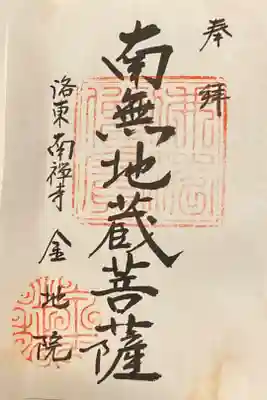 奉拜
南無地蔵菩薩
洛東南禅寺金地院